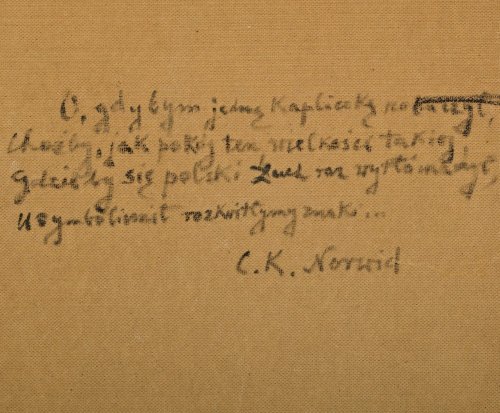 O, gdybym jedną kapliczkę zobaczył,
Choćby, jak pokój ten wielkości takiej,
Gdzieby się polski duch raz wytłómaczył,
Usymbolizmił rozkwitłymi znaki...
C. K. Norwid